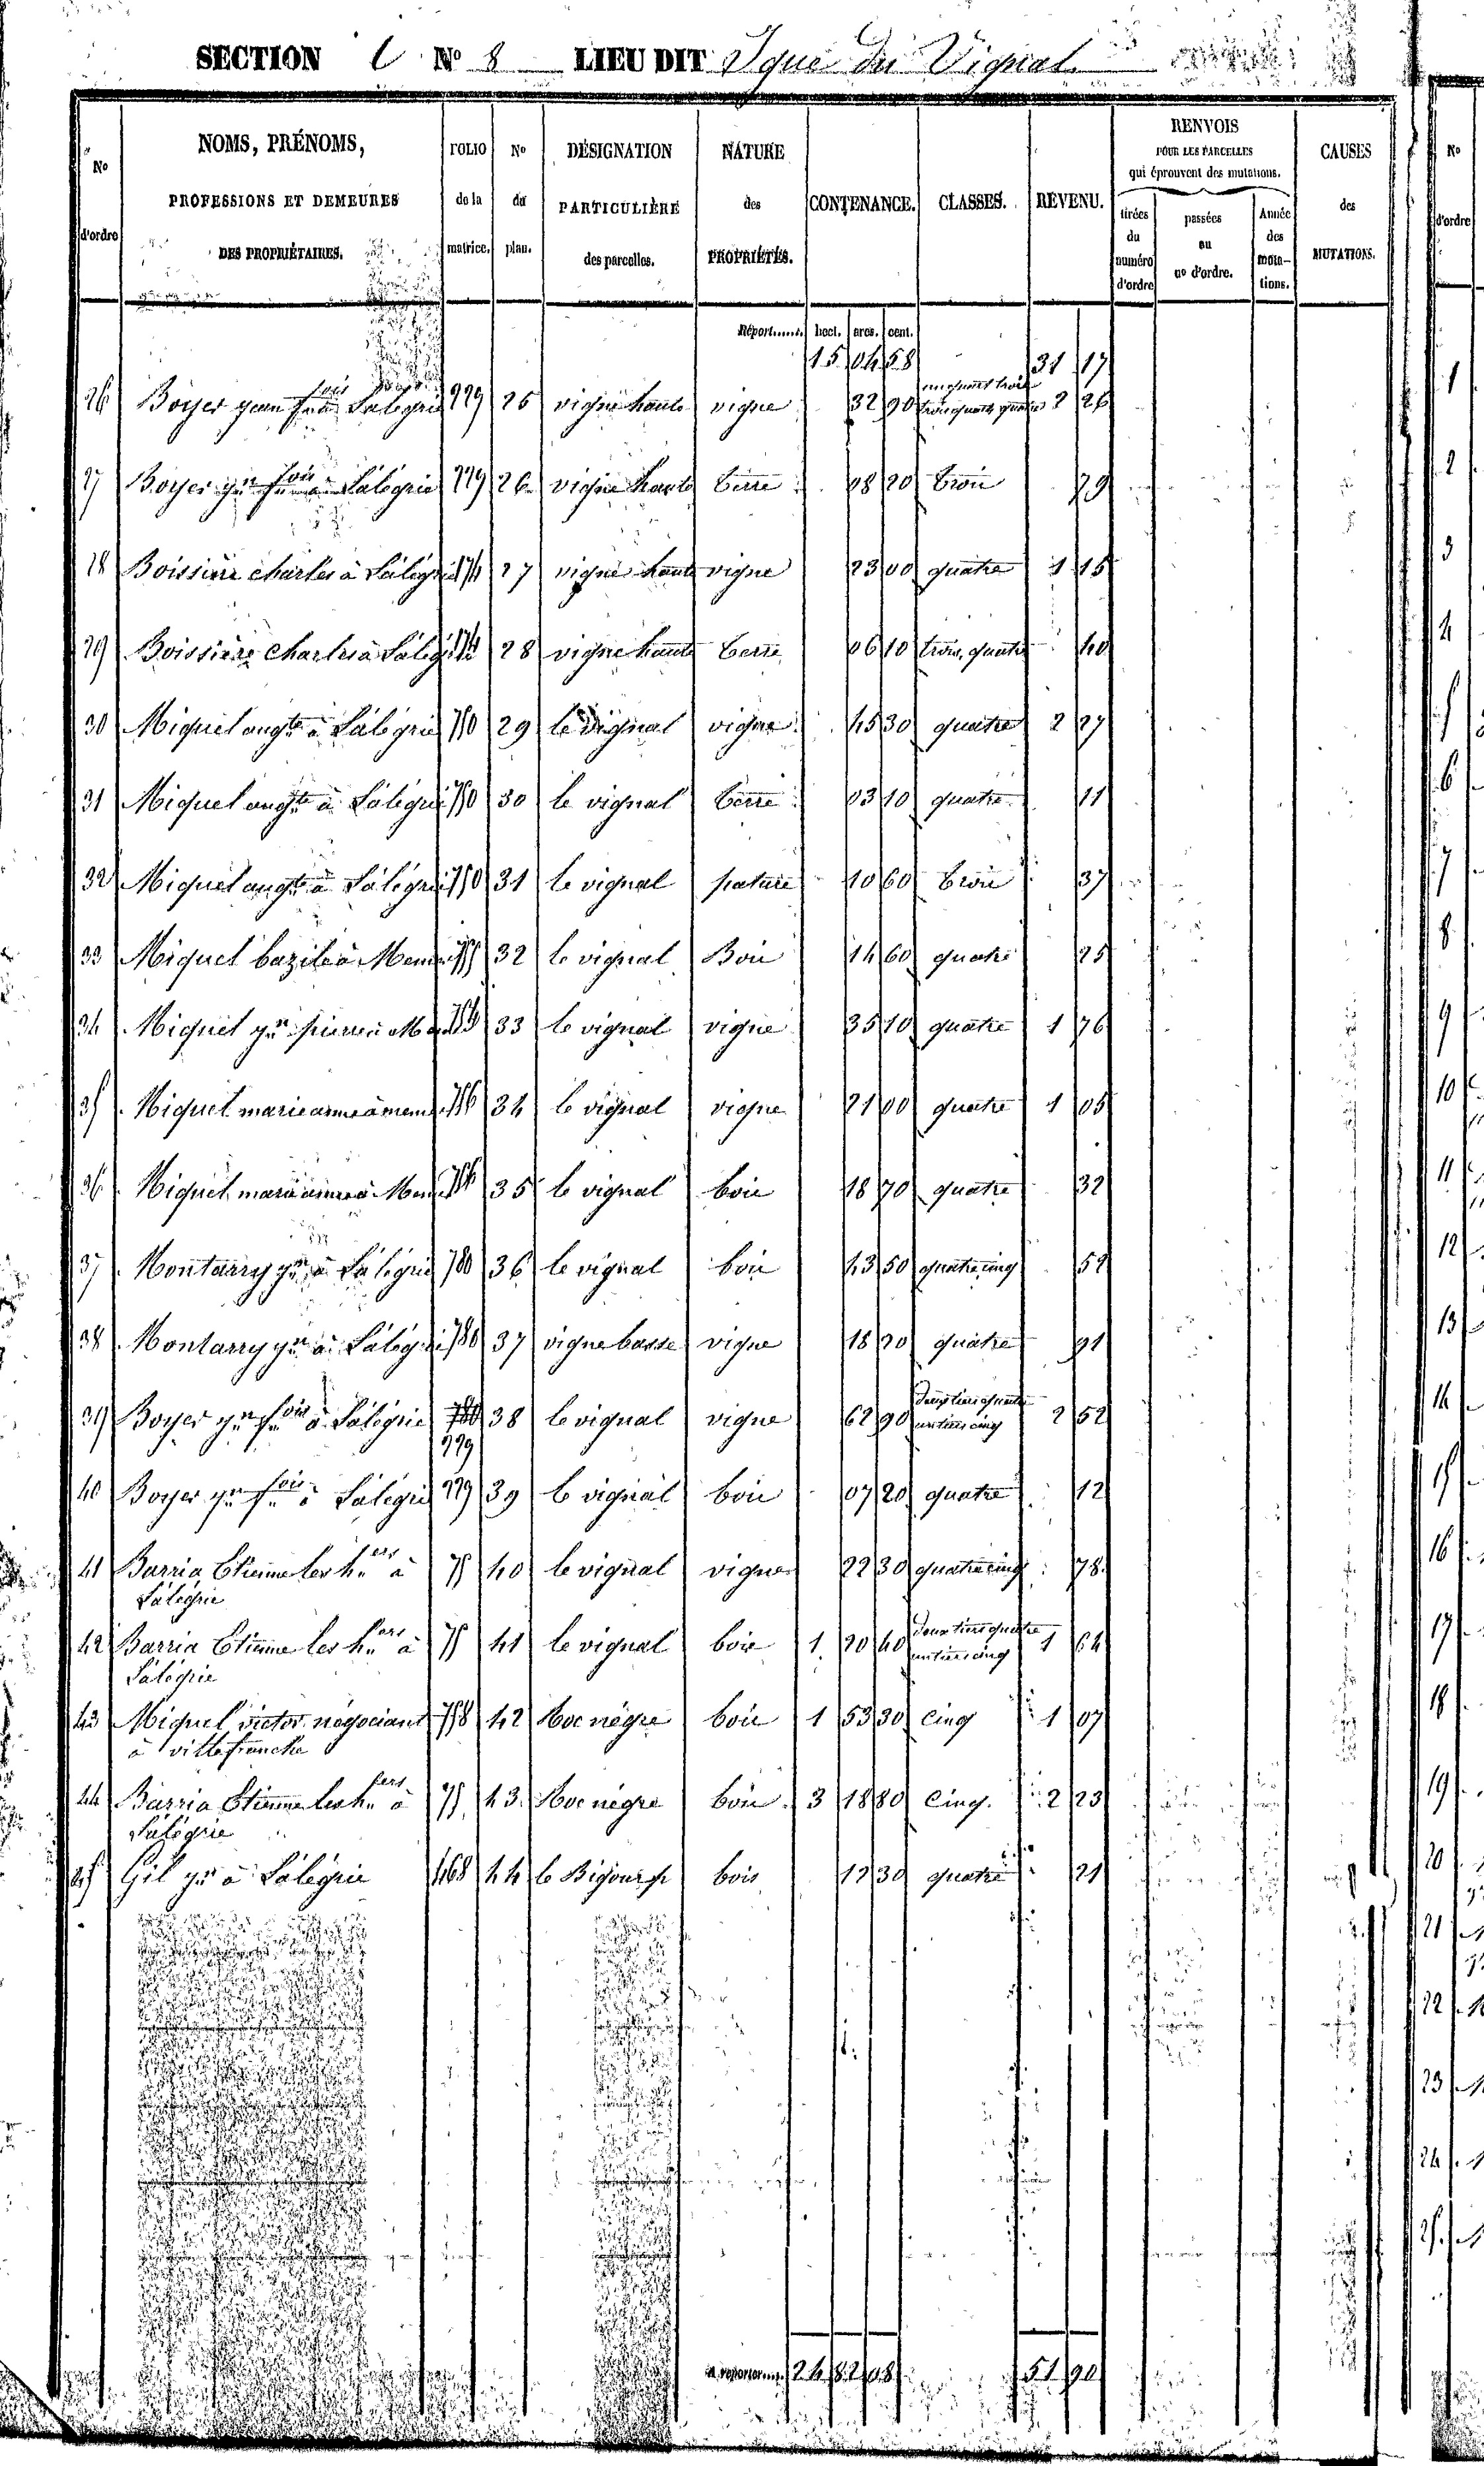 SECTION C No 8 LIEU DIT Igue du Vignal
No d'ordre | NOMS, PRÉNOMS, PROFESSIONS ET DEMEURES DES PROPRIÉTAIRES. | FOLIO de la matrice. | No du plan. | DÉSIGNATION PARTICULIÈRE des parcelles. | NATURE des PROPRIÉTÉS. | CONTENANCE. | CLASSES. | REVENU. | RENVOIS POUR LES PARCELLES qui éprouvent des mutations. | tirées du numéro d'ordre | passées au no d'ordre. | Année des mutations. | CAUSES des MUTATIONS.
Réport...... hect. ares. cent.
15 04 58 31 17
26 Boyer jean fois à Salégrie 229 25 vigne haute vigne 32 90 trois quarts quatre 2 26
27 Boyer jn fois à Salégrie 229 26 vigne haute terre 08 20 trois 79
28 Boissière charles à Salégrie 174 27 vigne haute vigne 23 00 quatre 1 15
29 Boissière charles à Salégrie 174 28 vigne haute terre 06 10 trois, quatre 40
30 Miquel augte à Salégrie 750 29 le vignal vigne 45 30 quatre 2 27
31 Miquel augte à Salégrie 750 30 le vignal terre 03 10 quatre 11
32 Miquel augte à Salégrie 750 31 le vignal pature 10 60 trois 37
33 Miquel bazile à 32 le vignal Bois 14 60 quatre 25
34 Miquel jn pierre à 33 le vignal vigne 35 10 quatre 1 76
35 Miquel marie anne à 756 34 le vignal vigne 21 00 quatre 1 05
36 Miquel marie anne à 756 35 le vignal bois 18 70 quatre 32
37 Montarry jn à Salégrie 780 36 le vignal bois 43 50 quatre cinq 52
38 Montarry jn à Salégrie 780 37 vigne basse vigne 18 20 quatre 91
39 Boyer jn fois à Salégrie 780 38 le vignal vigne 62 90 deux tiers quatre un tiers cinq 2 52
229
40 Boyer jn fois à Salégrie 229 39 le vignal bois 07 20 quatre 12
41 Barria Etienne les hers à 75 40 le vignal vigne 22 30 quatre cinq 78
Salégrie
42 Barria Etienne les hers à 75 41 le vignal bois 1 20 40 deux tiers quatre un tiers cinq 1 64
Salégrie
43 Miquel victor négociant 758 42 Roc nègre bois 1 53 30 cinq 1 07
à villefranche
44 Barria Etienne les hers à 75 43 Roc nègre bois 3 18 80 cinq. 2 23
Salégrie
45 Gil jn à Salégrie 468 44 le bois 12 30 quatre 21
A reporter..... 24 82 08 51 90
No d'ordre
1
2
3
4
5
6
7
8
9
10
11
12
13
14
15
16
17
18
19
20
21
22
23
24
25